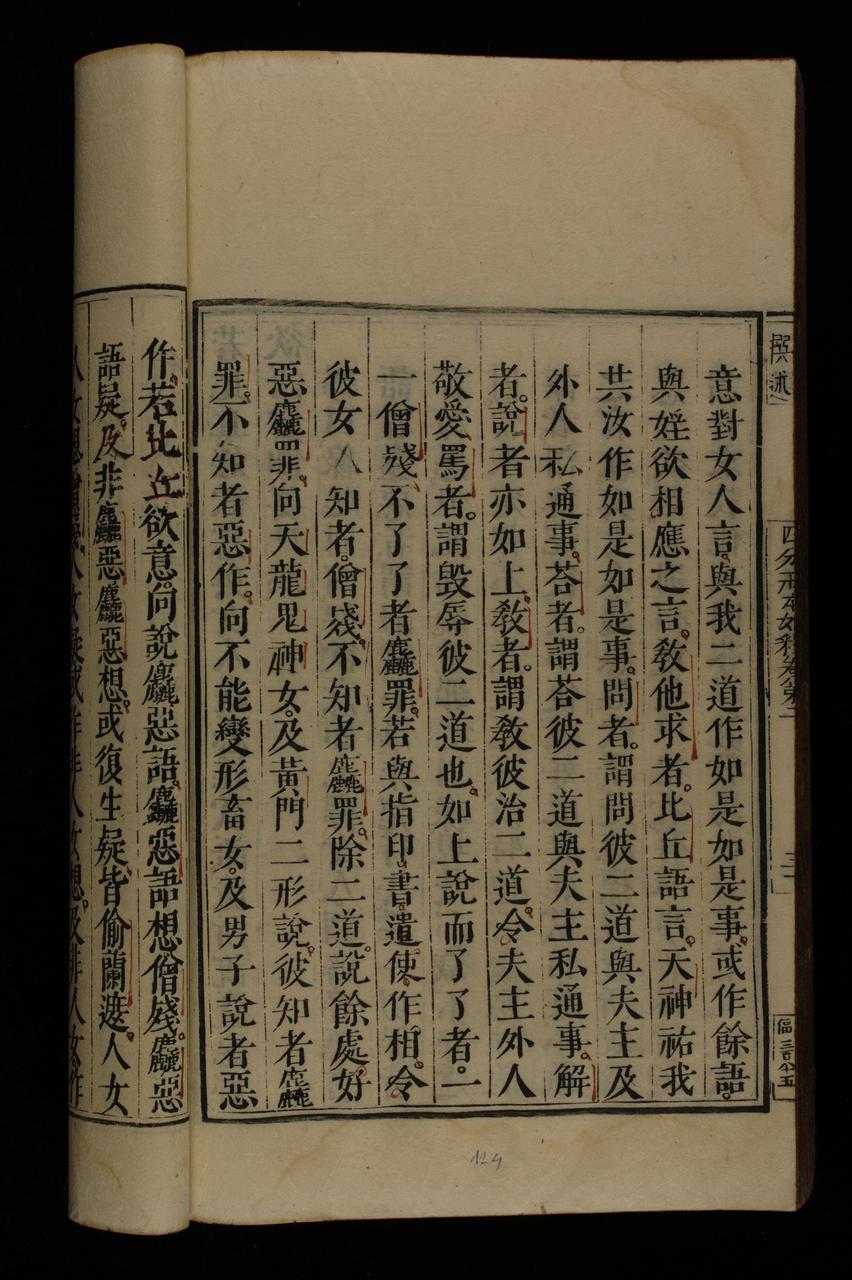 撰述
意對女人言。與我二道作如是如是事。或作餘語。
與婬欲相應之言。敎他求者。比丘語言。天神祐我
共汝作如是如是事。問者。謂問彼二道與夫主及
外人私通事。荅者。謂荅彼二道與夫主私通事。解
者。說者亦如上。敎者。謂敎彼治二道。令夫主外人
敬愛。罵者。謂毀辱彼二道也。如上說而了了者。一
一僧殘。不了了者麤罪。若與指印。書。遣使。作相。令
彼女人知者。僧殘。不知者麤罪。除二道。說餘處。好
惡麤罪。向天龍鬼神女。及黃門二形說。彼知者麤
罪。不知者惡作。向不能變形畜女。及男子說者惡
作。若比丘欲意。向說麤惡語。麤惡語想僧殘。麤惡
語疑。及非麤惡麤惡想。或復生疑。皆偷蘭遮。人女